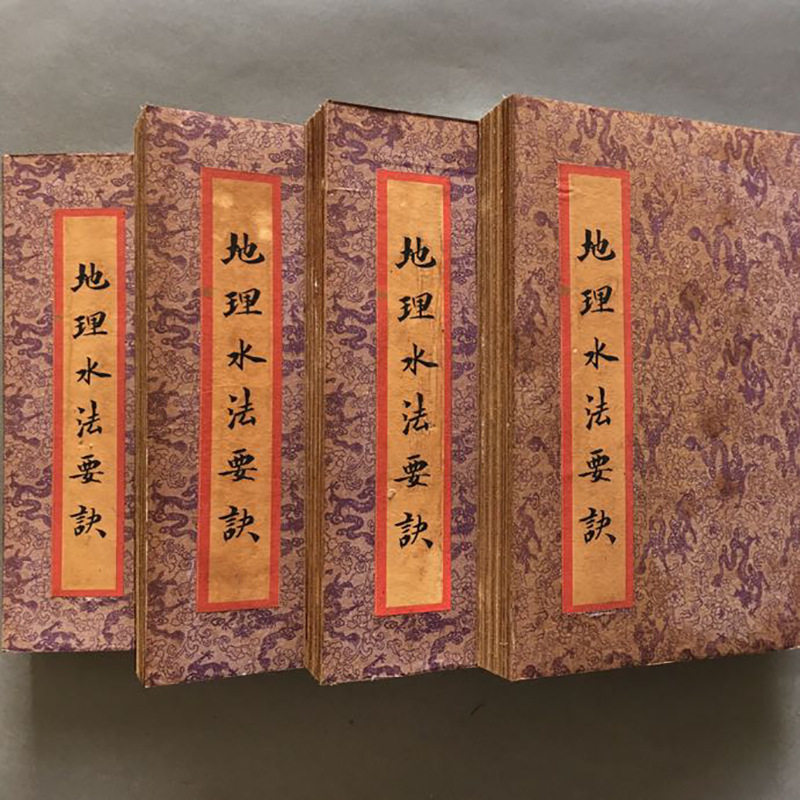 地理水法要訣
地理水法要訣
地理水法要訣
地理水法要訣